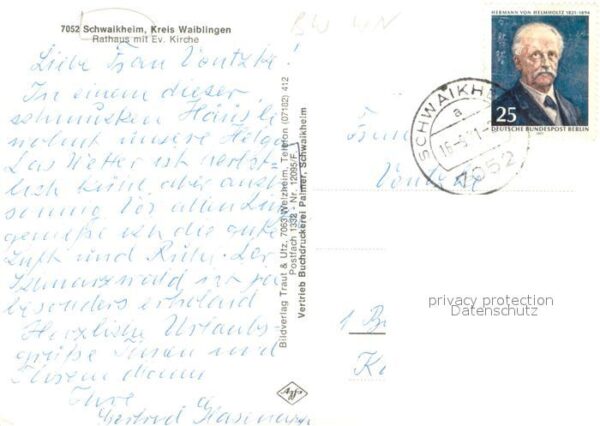 7052 Schwaikheim, Kreis Waiblingen
Rathaus mit Ev. Kirche
Liebe Frau Vontzke!
In einem dieser
schmucken Häusle
wohnt unsere Helga.
Das Wetter ist
lich keine aber
sonnig Vor allem
genieße ich die gute
Luft und Ruhe. Der
Schwarzwald
besonders erholend
Herzliche Urlaubs-
grüße Ihnen und
Ihrem Mann
Ihre
Gertrud
Bildverlag Traut & Utz, 7063 Welzheim, Telefon (07182) 412
Postfach 1332 - Nr. 12095/F
Vertrieb Buchdruckerei Palmer, Schwaikheim
Agfa
HERMANN VON HELMHOLTZ 1821-1894
25
DEUTSCHE BUNDESPOST BERLIN
SCHWAIKH
a
7052
Frau
Vontzke
1 B
K
privacy protection
Datenschutz